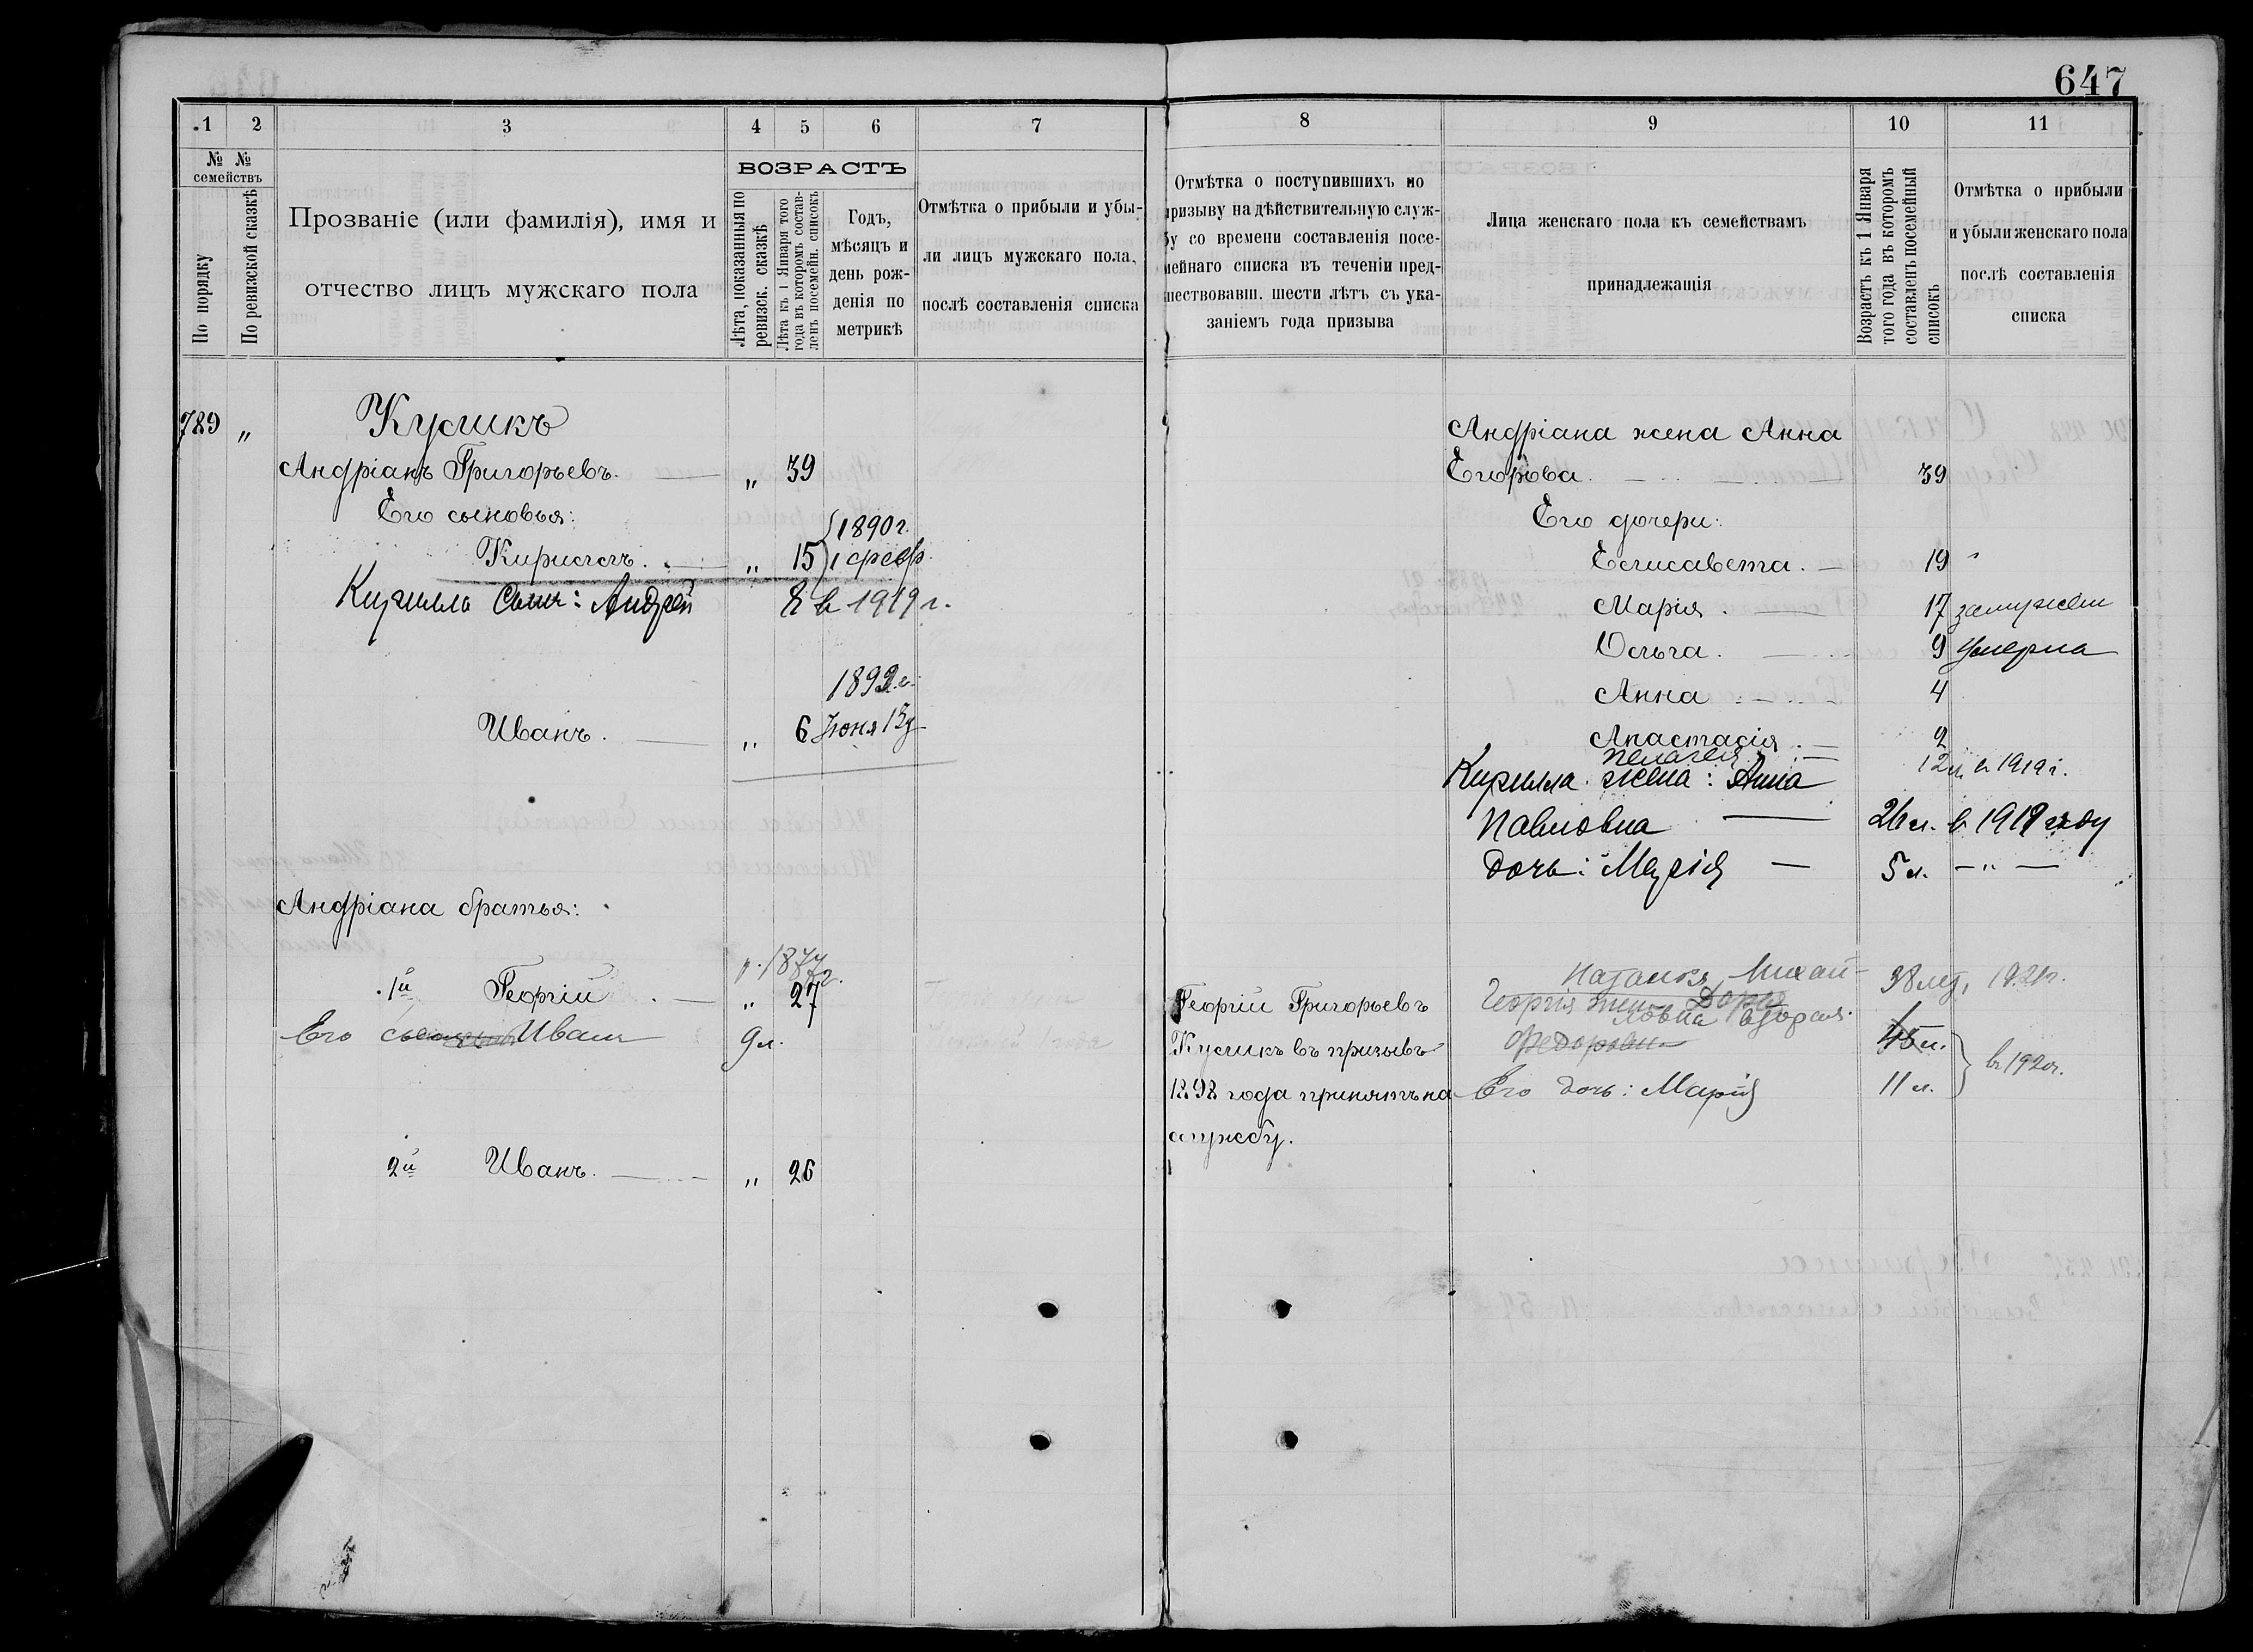 647
1 2 3 4 5 6 7
№ № семействъ
По порядку
По ревизской сказкѣ
Прозваніе (или фамилія), имя и
отчество лицъ мужскаго пола
ВОЗРАСТЪ
Лѣта, показанныя по
ревизск. сказкѣ
Лѣта къ 1 Января того
года въ которомъ состав-
ленъ посемейн. списокъ
Годъ,
мѣсяцъ и
день рож-
денія по
метрикѣ
Отмѣтка о прибыли и убы-
ли лицъ мужскаго пола,
послѣ составленія списка
789 „ Кусикъ
Андріанъ Григорьевъ. „ 39
Его сыновья:
1890 г.
Кириллъ. „ 15 1 февр.
Кирилла сынъ: Андрей 8 в 1919 г.
1899 г.
Иванъ. „ 6 Іюня 13 д
Андріана братья:
р. 1877 г.
1й Георгій „ 27
Его Иванъ 9 л.
2й Иванъ. „ 26
8 9 10 11
Отмѣтка о поступившихъ по
призыву на дѣйствительную служ-
бу со времени составленія посе-
мейнаго списка въ теченіи пред-
шествовавш. шести лѣтъ съ ука-
заніемъ года призыва
Лица женскаго пола къ семействамъ
принадлежащія
Возрастъ къ 1 Января
того года въ которомъ
составленъ посемейный
списокъ
Отмѣтка о прибыли
и убыли женскаго пола
послѣ составленія
списка
Андріана жена Анна
Егорова. 39
Его дочери:
Елисавета. 19 "
Марія. 17 замужем
Ольга. 9 умерла
Анна 4
Анастасія. 2
Пелагея 12 л. в 1919 г.
Кирилла жена: Анна
Павловна 26 л. в 1919 году
дочь: Марія 5 л. — " —
Георгій Григорьевъ
Кусикъ въ призывъ
1898 года принятъ на
службу.
Михай- 38 лет, 1921 г.
Георгія жена Дарья
ловна
Федоровна 45 л.
Его дочь: Марія 11 л. в 1920 г.